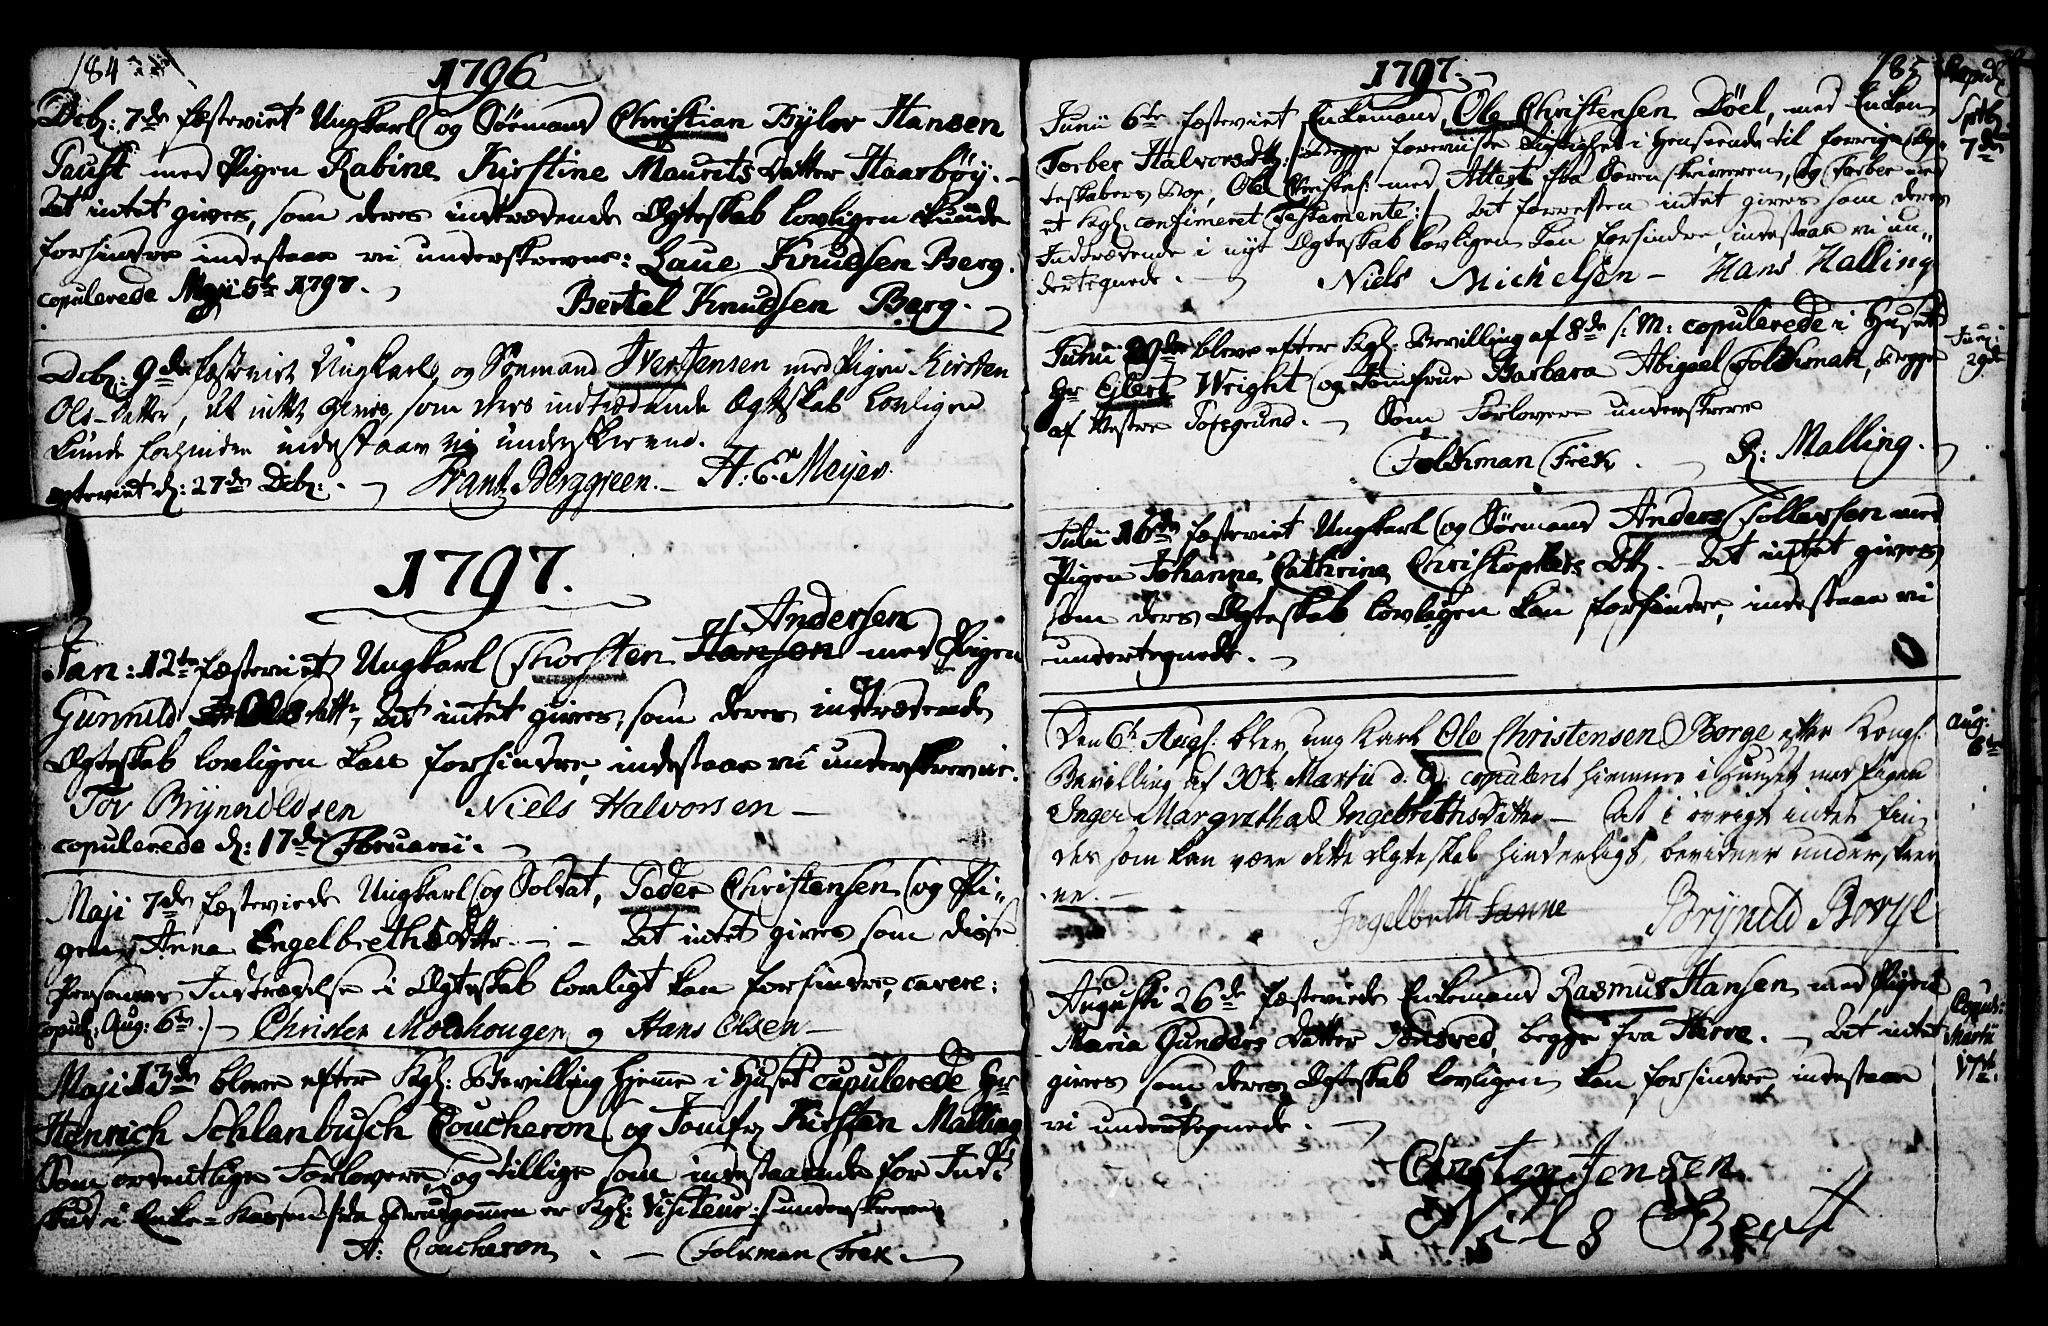 184
1796
Decbr: 7de fæsteviet Ungkarl og Söemand Christian Byler Hansen
Faust med Pigen Rabine Kirstine Maurits Datter Haarböy. -
At intet gives, som deres indtrædende Ægteskab lovligen kunde
forhindre indestaar vi underskrevne: Laue Knudsen Berg.
copulerede Maji 5te 1797.
Bertel Knudsen Berg.
Decbr: 9de fæsteviet Ungkarl og Sömand Iver Jensen med Pigen Kirsten
Ols-Datter, at intet gives, som deres indtrædende Ægteskab lovligen
kunde forhindre indestaar vi underskrevne.
egteviet d: 27de Decbr: Frantz Berggreen. - H: E: Meyer.
1797.
Andersen
Jan: 12te fæsteviet Ungkarl Thorsten Hansen med Pigen
Gunnild Olsdattr, At intet gives, som deres indtrædende
Ægteskab lovligen kan forhindre, indestaar vi underskrevne.
Tov Brÿnnildsen Niels Halvorsen -
copulerede d: 17de Februarii.
Maji 7de fæsteviede Ungkarl og Soldat, Peder Christensen og Pi-
gen Anna Engelbrethsdttr. - - At intet gives som disse
Personers Indtrædelse i Ægteskab lovligt kan forhindre, cavere:
copul: Aug: 6te.) - Christen Moldhougen og Hans Olsen -
Maji 13de bleve efter Kgl: Bevilling hjeme i Huset copulerede Hr
Henrich Schlanbusch Coucheron og Jomfr Kirsten Malling
Som ordentlige Forlovere, og tillige som indestaaende for Ind-
skud i Enke-Kassen fra Brudgommen er Kgl: Visiteur:/ underskreve
A: Coucheron. - Folkman Frek.
1797.
185
Junii 6te fæsteviet Enkemand, Ole Christensen Döel, med Enken
Torber Halvorsdtr: /: begge foreviiste Rigtighed i Henseende til forrige Æg-
teskabers Boe, Ole Christens: med Attest fra Sorenskriveren, og Torber med
et Kgl: confirmeret Testamente:/ At forresten intet gives som deres
Indtrædende i nyt Ægteskab lovligen kan forhindre, indestaar vi un-
dertegnede. - Niels Michelsen - Hans Halling
Copul:
Sptbr
7de
Junii 29de bleve efter Kgl: Bevilling af 8de s: M: copulerede i Huset
Hr Eilert Wright og Jomfrue Barbara Abigael Folkman, begge
af Vestre Porsgrund. - Som Forlovere underskreve
Folkman Frek. - R: Malling.
Juni
29de
Julii 16de fæsteviet Ungkarl og Söemand Anders Tollefsen med
Pigen Johanne Cathrine Christophers Dtr. - At intet gives
som deres Ægteskab lovligen kan forhindre, indestaar vi
undertegnede.
0
Den 6t Augs: blev ung Karl Ole Christensen Borge efter Kongl:
Bevilling af 30te Martii d: A: copuleret hiemme i Huuset med Pigen
Inger Margretha Ingebrethsdatter - At i övrigt intet fin-
des som kan være dette Ægteskab hinderligt, bevidner underskrev-
ne. -
Ingelbreth Sanne Brÿnild Borge
Aug:
6te
Augusti 26de fæsteviede Enkemand Rasmus Hansen med Pigen
Maria Gunders Datter, begge fra Herre. - At intet
gives som deres Ægteskab lovligen kan forhindre, indestaar
vi undertegnede.
Christen Jensen
Niels
Copul:
Martii
17de.